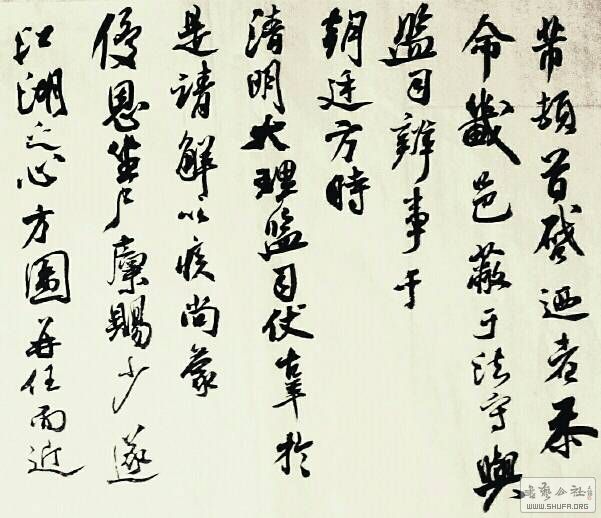 芾頓首啓邇者忝
命畿邑蔽于法守與
監司辨事于
朝廷方時
清明大理監司伏辜於
是請解以疾尚蒙
優恩坐尸廩賜少遂
江湖之心方圖再任而近
书艺公社
WWW.SHUFA.ORG